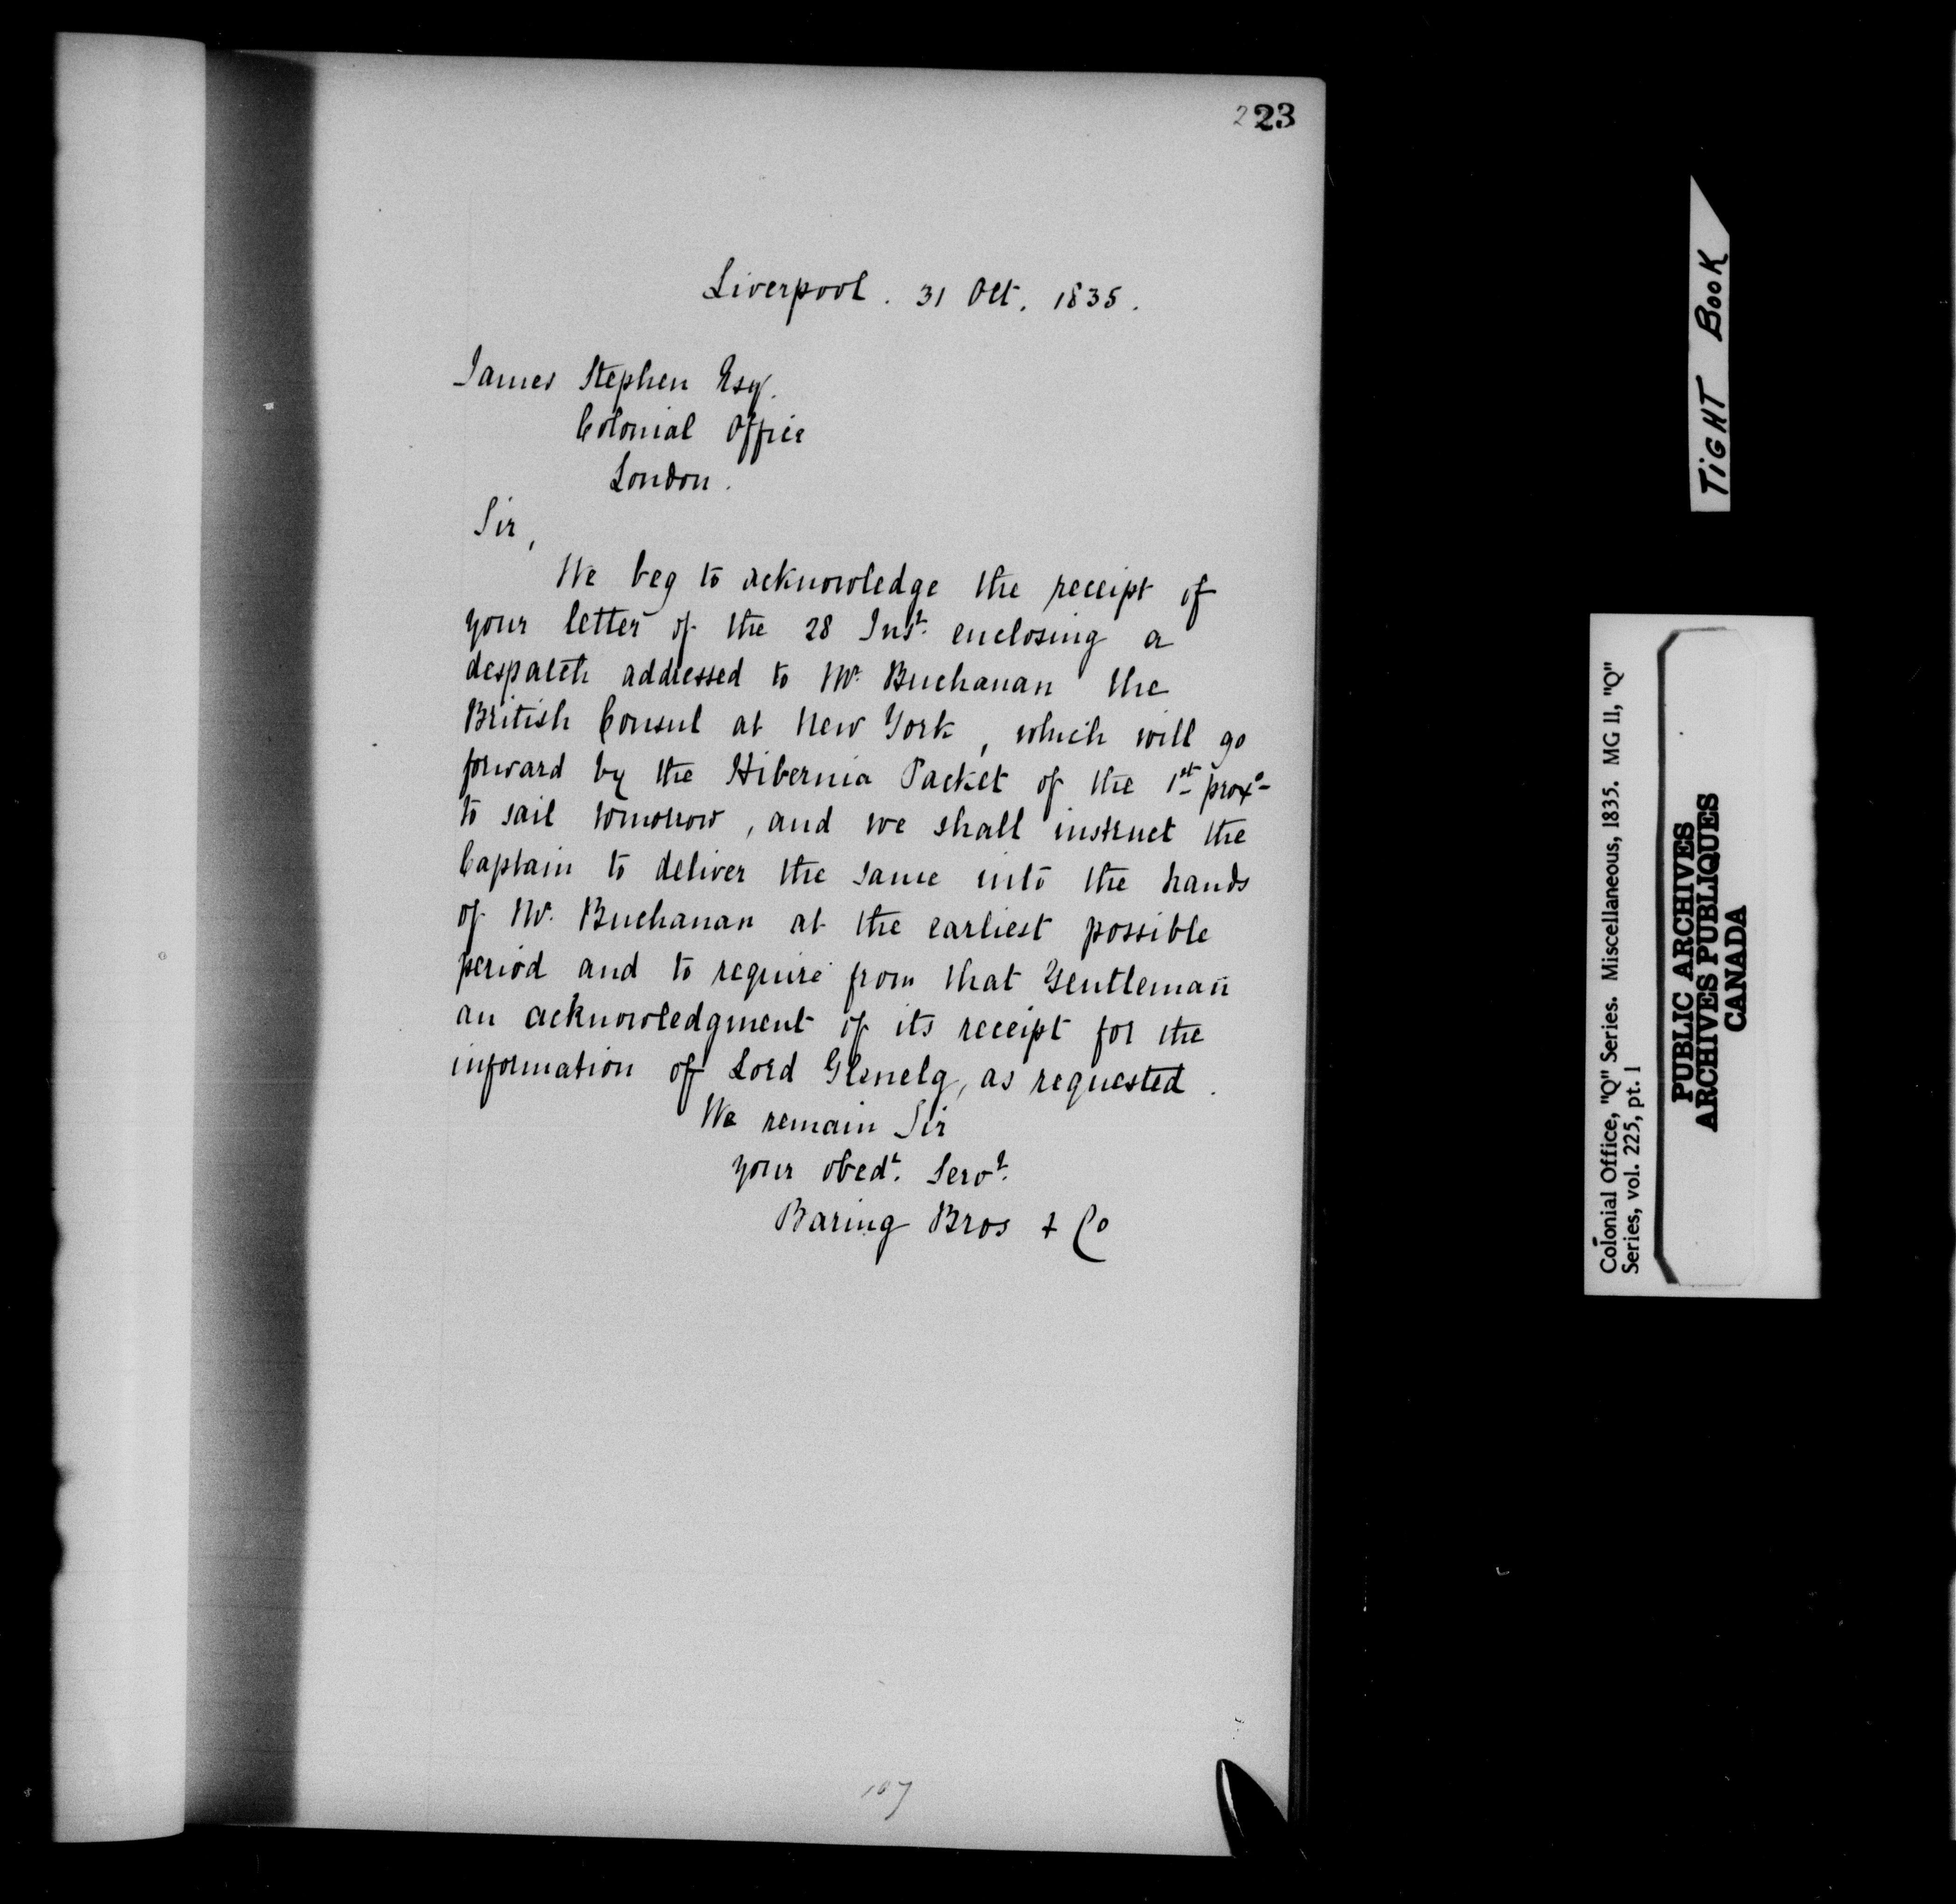 223
Liverpool. 31 Oct. 1835.
James Stephen Esq.
Colonial Office
London.
Sir,
We beg to acknowledge the receipt of
your letter of the 28 Inst. enclosing a
despatch addressed to Mr. Buchanan the
British Consul at New York, which will go
forward by the Hibernia Packet of the 1st proxo
to sail tomorrow, and we shall instruct the
Captain to deliver the same into the hands
of Mr. Buchanan at the earliest possible
period and to require from that Gentleman
an acknowledgment of its receipt for the
information of Lord Glenelg, as requested.
We remain Sir
your obedt. Servt.
Baring Bros + Co
107
TIGHT BOOK
Colonial Office, "Q" Series. Miscellaneous, 1835. MG 11, "Q"
Series, vol. 225, pt. 1
PUBLIC ARCHIVES
ARCHIVES PUBLIQUES
CANADA